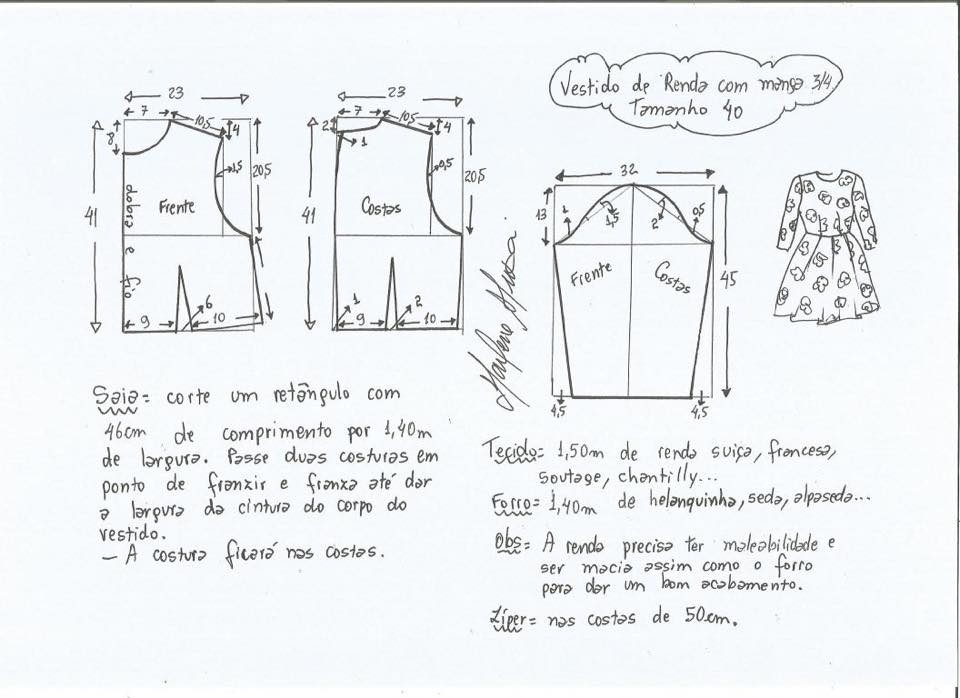 Vestido de Renda com manga 3/4
Tamanho 40
23
7
10,5
4
8
1,5
20,5
41
dobra e fio
Frente
6
9
10
23
2
1
10,5
4
0,5
20,5
41
Costas
1
2
9
10
32
13
1
1,5
2
0,5
Frente
Costas
45
4,5
4,5
Marlene Mukai
Saia= corte um retângulo com
46cm de comprimento por 1,40m
de largura. Passe duas costuras em
ponto de franzir e franza até dar
a largura da cintura do corpo do
vestido.
- A costura ficará nas costas.
Tecido= 1,50m de renda suiça, francesa,
soutage, chantilly...
Forro= 1,40m de helanquinha, seda, alpaseda...
Obs= A renda precisa ter maleabilidade e
ser macia assim como o forro
para dar um bom acabamento.
Zíper= nas costas de 50cm.